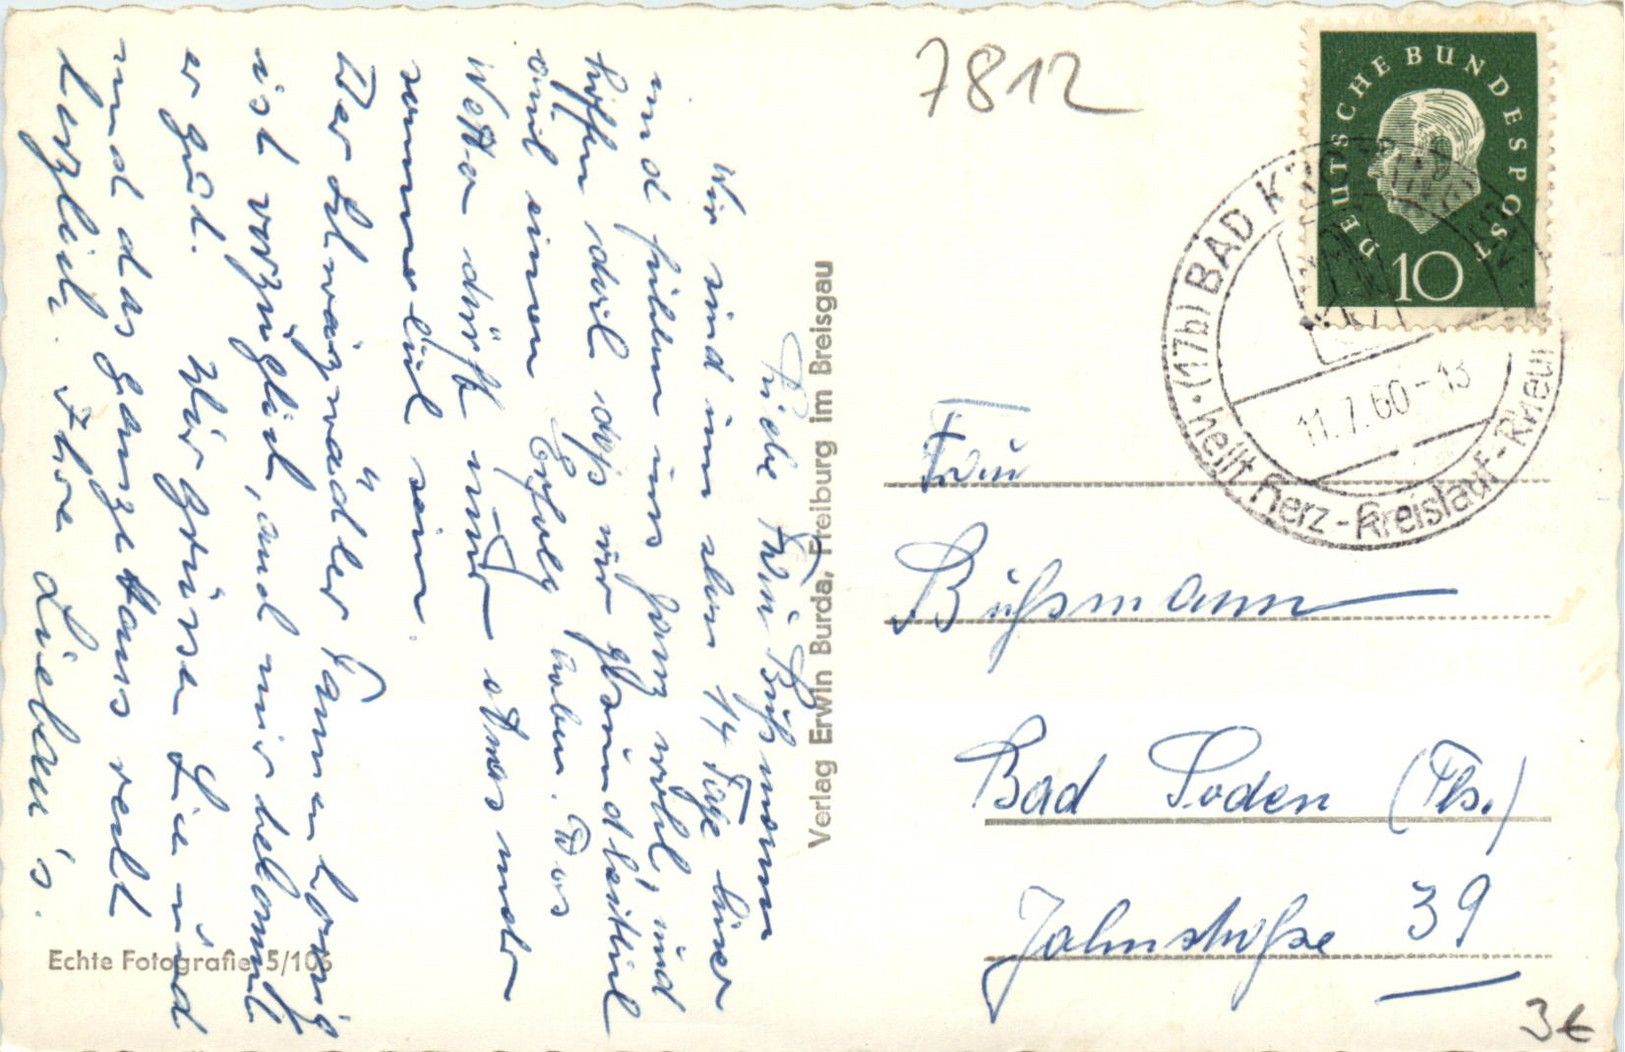 7812
DEUTSCHE BUNDESPOST
10
(17b) BAD K
11.7.60-13
heilt Herz-Kreislauf-Rheu
Liebe Frau Bußmann
Wir sind nun schon 14 Tage hier
und fühlen uns ganz wohl, und
hoffen doch daß wir gesundheitlich
auch einen Erfolg haben. Das
Wetter dürft nur etwas mehr
sommerlich sein.
Der Schwarzwälder Tannenhonig
ist vorzüglich, und mir bekommt
er gut. Wir grüssen Sie und
und das ganze Haus recht
herzlich. Ihre Liebau's.
Verlag Erwin Burda, Freiburg im Breisgau
Echte Fotografie 5/106
Frau
Bußmann
Bad Soden (Ts.)
Jahnstraße 39
3€